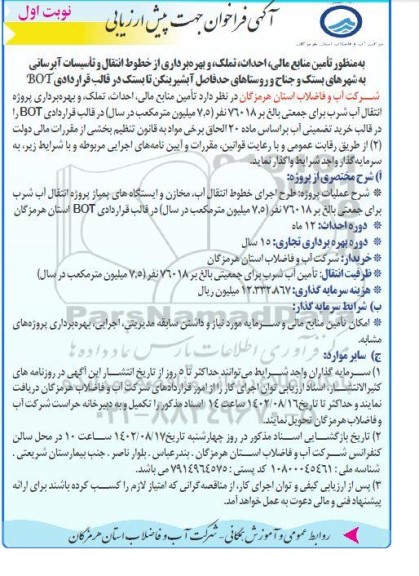 نوبت اول
آگهی فراخوان جهت پیش ارزیابی
به منظور تأمین منابع مالی، احداث، تملک، و بهره‌برداری از خطوط انتقال و تأسیسات آبرسانی
به شهرهای بستک و جناح و روستاهای حدفاصل آبشیرینکن تا بستک در قالب قراردادی BOT
شرکت آب و فاضلاب استان هرمزگان در نظر دارد تأمین منابع مالی، احداث، تملک، و بهره‌برداری پروژه
انتقال آب شرب برای جمعیتی بالغ بر ۷۶۰۱۸ نفر (۷٫۵ میلیون مترمکعب در سال) در قالب قراردادی BOT را
در قالب خرید تضمینی آب براساس ماده ۲۰ الحاق برخی مواد به قانون تنظیم بخشی از مقررات مالی دولت
(۲) از طریق رقابت عمومی و با رعایت قوانین، مقررات و آیین نامه‌های اجرایی مربوطه و با شرایط زیر، به
سرمایه‌گذار واجد شرایط واگذار نماید.
أ) شرح مختصری از پروژه:
* شرح عملیات پروژه: طرح اجرای خطوط انتقال آب، مخازن و ایستگاه های پمپاژ پروژه انتقال آب شرب
برای جمعیتی بالغ بر ۷۶۰۱۸ نفر (۷٫۵ میلیون مترمکعب در سال) در قالب قراردادی BOT استان هرمزگان
* دوره احداث: ۱۲ ماه
* دوره بهره برداری تجاری: ۱۵ سال
* خریدار: شرکت آب و فاضلاب استان هرمزگان
* ظرفیت انتقال: تأمین آب شرب برای جمعیتی بالغ بر ۷۶۰۱۸ نفر (۷٫۵ میلیون مترمکعب در سال)
* هزینه سرمایه گذاری: ۱۲٫۳۳۲٫۸۶۷ میلیون ریال
ب) شرایط سرمایه گذار:
* امکان تأمین منابع مالی و سرمایه مورد نیاز و داشتن سابقه مدیریتی، اجرایی، بهره‌برداری پروژه‌های
مشابه.
ج) سایر موارد:
۱) سرمایه گذاران واجد شرایط می‌توانند حداکثر تا ۵ روز از تاریخ انتشار این آگهی در روزنامه های
کثیرالانتشار، اسناد ارزیابی توان اجرای کار را از امور قراردادهای شرکت آب و فاضلاب هرمزگان دریافت
نمایند و حداکثر تا تاریخ ۱۴۰۲/۰۸/۱۶ ساعت ۱۴ اسناد مذکور را تکمیل و به دبیرخانه حراست شرکت آب
و فاضلاب هرمزگان تحویل نمایند.
۲) تاریخ بازگشایی اسناد مذکور در روز چهارشنبه تاریخ ۱۴۰۲/۰۸/۱۷ ساعت ۱۰ در محل سالن
کنفرانس شرکت آب و فاضلاب استان هرمزگان . بندرعباس . بلوار ناصر . جنب بیمارستان شریعتی .
شناسه ملی : ۱۰۸۰۰۰۴۵۴۶۱ کد پستی : ۷۹۱۴۹۶۴۵۷۵ می باشد.
۳) پس از ارزیابی کیفی و توان اجرای کار، از مناقصه‌گرانی که امتیاز لازم را کسب کرده باشند برای ارائه
پیشنهاد فنی و مالی دعوت به عمل خواهد آمد.
روابط عمومی و آموزش همگانی - شرکت آب و فاضلاب استان هرمزگان